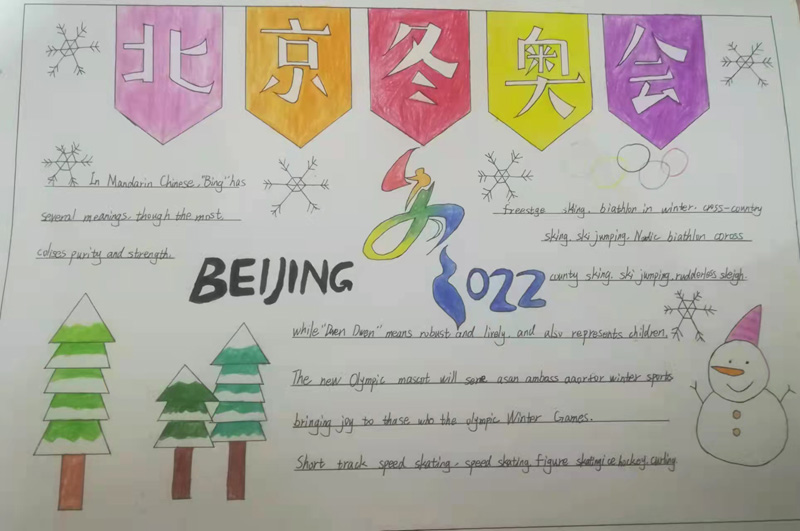 北京冬奥会
In Mandarin Chinese, "Bing" has
several meanings, though the most.
purity and strength.
freestge sking. biathlon in winter. cross-country
sking, ski jumping. Nodic biathlon coross
county sking, ski jumping, rudderless sleigh.
BEIJING 2022
while "Dwen Dwen" means robust and lively, and also represents children.
The new Olympic mascot will serve asan ambass aaor for winter sports
bringing joy to those who the olympic Winter Games.
Short track speed skating, speed skating figure skatingice hockey. curling